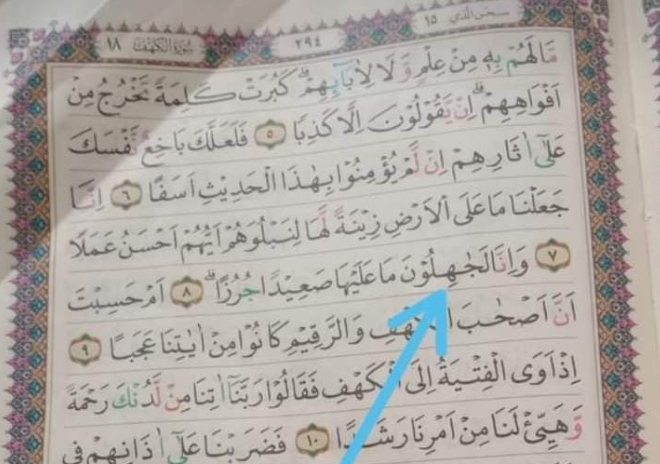 سُوْرَةُ الْكَهْفِ ١٨ ٢٩٤ سبحن الذي ١٥
مَّا لَهُمْ بِهٖ مِنْ عِلْمٍ وَّلَا لِاٰبَآىِٕهِمْۗ كَبُرَتْ كَلِمَةً تَخْرُجُ مِنْ
اَفْوَاهِهِمْۗ اِنْ يَّقُوْلُوْنَ اِلَّا كَذِبًا ٥ فَلَعَلَّكَ بَاخِعٌ نَّفْسَكَ
عَلٰٓى اٰثَارِهِمْ اِنْ لَّمْ يُؤْمِنُوْا بِهٰذَا الْحَدِيْثِ اَسَفًا ٦ اِنَّا
جَعَلْنَا مَا عَلَى الْاَرْضِ زِيْنَةً لَّهَا لِنَبْلُوَهُمْ اَيُّهُمْ اَحْسَنُ عَمَلًا
٧ وَاِنَّا لَجٰهِلُوْنَ مَا عَلَيْهَا صَعِيْدًا جُرُزًاۗ ٨ اَمْ حَسِبْتَ
اَنَّ اَصْحٰبَ الْكَهْفِ وَالرَّقِيْمِ كَانُوْا مِنْ اٰيٰتِنَا عَجَبًا ٩
اِذْ اَوَى الْفِتْيَةُ اِلَى الْكَهْفِ فَقَالُوْا رَبَّنَآ اٰتِنَا مِنْ لَّدُنْكَ رَحْمَةً
وَّهَيِّئْ لَنَا مِنْ اَمْرِنَا رَشَدًا ١٠ فَضَرَبْنَا عَلٰٓى اٰذَانِهِمْ فِى